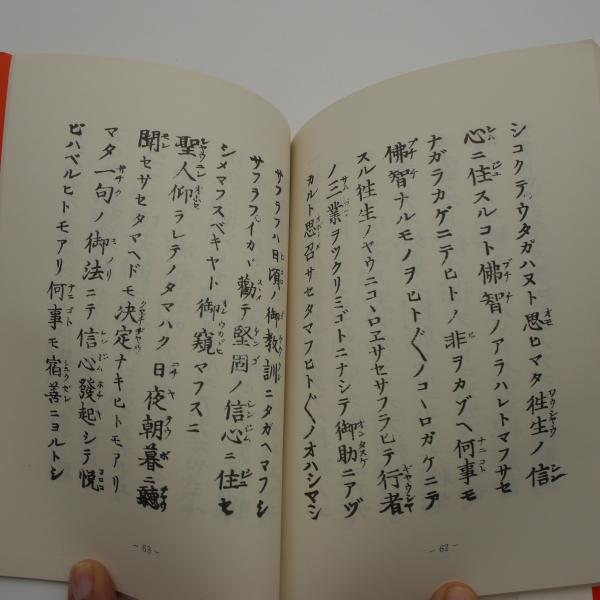 シコクテウタガハヌト思ヒマタ徃生ノ信
心ニ住スルコト佛智ノアラハレトマフサセ
ナガラカゲニテヒトノ非ヲカゾヘ何事モ
佛智ナルモノヲヒト〴〵ノコヽロガケニテ
スル徃生ノヤウニコヽロヱサセサフラヒテ行者
ノ三業ヲツクリミゴトニナシテ御助ニアヅ
カルト思召サセタマフヒト〴〵ノオハシマシ
- 62 -
サフラフハ日頃ノ御教訓ニタガヘマフシ
サフラフイカヾ勸テ堅固ノ信心ニ住セ
シメマフスベキヤト御窺マフスニ
聖人仰ラレテノタマハク日夜朝暮ニ聽
聞セサセタマヘドモ決定ナキヒトモアリ
マタ一句ノ御法ニテ信心發起シテ悦
ビハベルヒトモアリ何事モ宿善ニヨルトシ
- 63 -